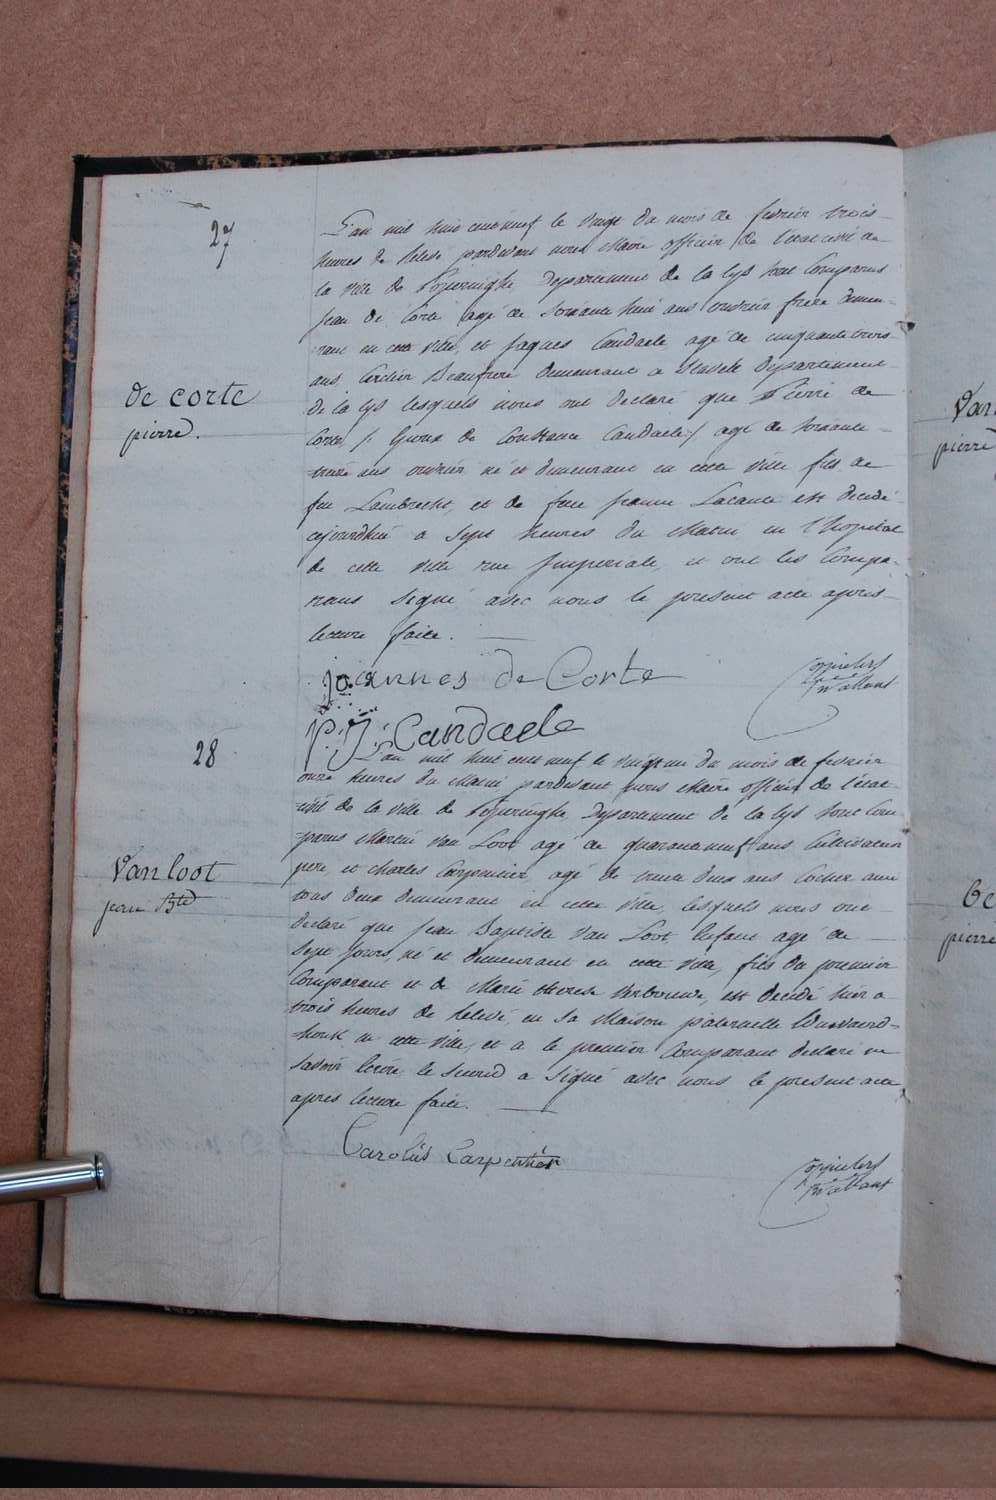 27
L'an mil huit cent neuf le vingt du mois de fevrier trois
heures de relevé pardevant nous Maire officier de l'état civil de
la ville de Poperinghe Departement de la lys sont comparus
Jean de Corte agé de soixante huit ans ouvrier frere demeu-
rant en cette ville, et Jaques Candaele agé de cinquante trois
ans, Beaufrere demeurant a Departement
de la lys lesquels nous ont declaré que Pierre de
Corte /: Epoux de Constance Candaele :/ agé de soixante
ans ouvrier né et demeurant en cette ville fils de
feu Lambrecht, et de feue est decedé
cejourdhui a sept heures du Matin en l'hopital
de cette ville rue Imperiale, et ont les Compa-
rans signé avec nous le present acte après
lecture faite.
de corte
pierre.
joannes de Corte
P. J. Candaele
28
L'an mil huit cent neuf le vingt un du mois de fevrier
onze heures du Matin pardevant nous Maire officier de l'état
civil de la ville de Poperinghe Departement de la lys sont com-
parus Martin van Loot agé de quarante neuf ans Cultivateur
pere, et Charles Carpentier agé de trente deux ans Cocher ami
tous deux demeurant en cette ville, lesquels nous ont
declaré que Jean Baptiste van Loot Enfant agé de
sept jours, né et demeurant en cette ville, fils du premier
Comparant et de Marie therese est decedé hier a
trois heures de relevé, en sa Maison paternelle
en cette ville, et a le premier Comparant declaré ne
savoir Ecrire le second a signé avec nous le present acte
après lecture faite.
Van loot
jean Bte
Carolus Carpentier
Van
pierre
pierre